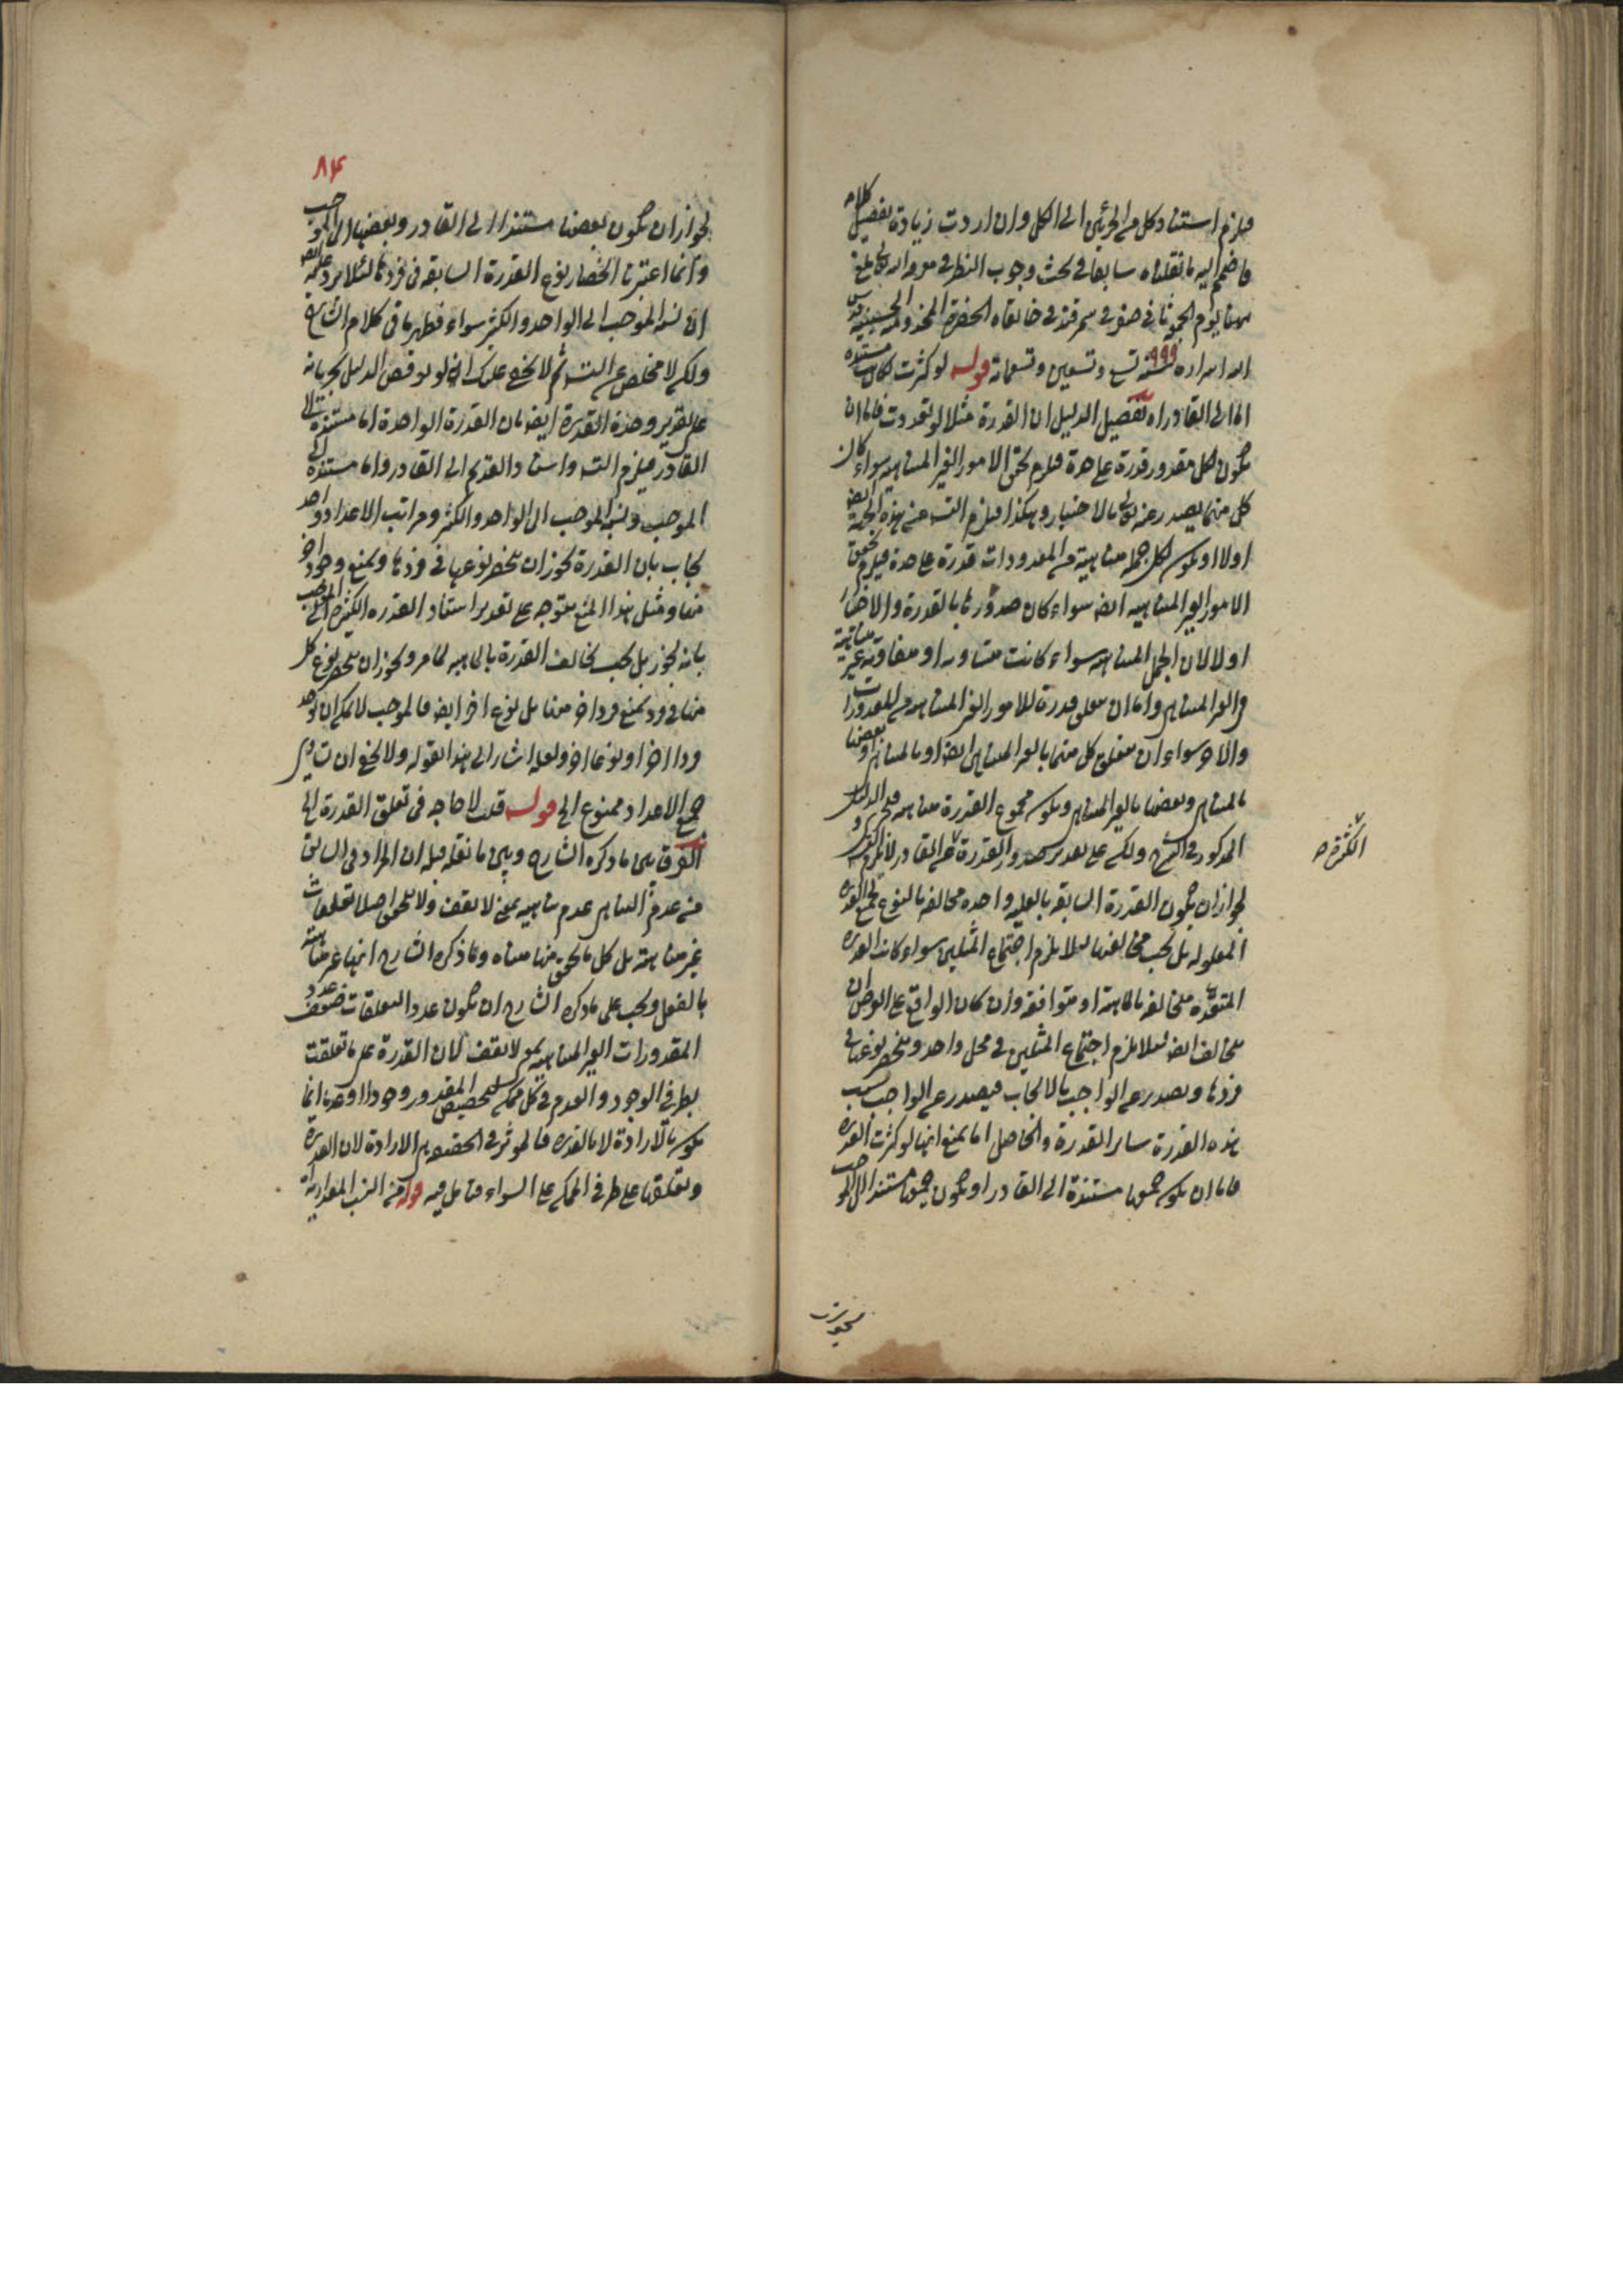 فيلزم استناد كل من الجزئين الى الكل وان اردت زيادة تفصيل كلام
فاضمم اليه ما نقلناه سابقا في بحث وجوب النظر في معرفة الله تعالى
يوم الجمعة في سمرقند في خانقاه الحضرة المخدومية الحسينية قدس
الله اسراره ٩٩٩ سنة تسع وتسعين وتسعمائة قوله لو كثرت لكانت مستندة
اما الى القادر اه تفصيل الدليل ان القدرة مثلا لو تعددت فاما ان
يكون لكل مقدور قدرة على حدة فيلزم تحقق الامور الغير المتناهية سواء كان
كل منها يصدر عنه تعالى بالاختيار وهكذا فيلزم التسلسل من هذه الجهة ايضا
اولا او يكون لكل جملة متناهية من المقدورات قدرة على حدة فيلزم تحقق
الامور الغير المتناهية ايضا سواء كان صدورها بالقدرة والاختيار
اولا لان الجمل المتناهية سواء كانت متساوية او متفاوتة غير متناهية
والغير المتناهي واما ان يتعلق قدرة للامور الغير المتناهية من المقدورات
والاخر سواء ان يتعلق كل منها بالغير المتناهي ايضا او بالمتناهي او بعضها
بالمتناهي وبعضها بالغير المتناهي ويكون مجموع القدرة متناهية فيجري الدليل
المذكور في الشرح ولكن على تقدير صدور القدرة عن القادر لا يلزم
الكثرة صح
لجواز ان يكون القدرة السابقة بالعلية واحدة مخالفة بالنوع لجميع القدرة
المعلولة بل يجب مخالفتها لئلا يلزم اجتماع المثلين سواء كانت القدرة
المتعددة متخالفة بالماهية او متوافقة وان كان الواقع على الوجهين ان
يتخالف ايضا لئلا يلزم اجتماع المثلين في محل واحد وينحصر نوعها في
فردها ويصدر عن الواجب بالايجاب فيصدر عن الواجب بسبب
هذه القدرة سائر القدرة والحاصل انا نمنع انها لو كثرت القدرة
فاما ان يكون جميعها مستندة الى القادر او يكون جميعها مستندا الى الموجب
لجواز ان
٨٤
لجواز ان يكون بعضها مستندا الى القادر وبعضها الى الموجب
وانما اعتبرنا انحصار نوع القدرة السابقة في فردها لئلا يرد عليه
ان نسبة الموجب الى الواحد والكثير سواء فظهر ما في كلام الشارح
ولكن لا مخلص عن التسلسل ثم لا يخفى عليك انه لو نوقض الدليل بجريانه
على تقدير وحدة القدرة ايضا بان القدرة الواحدة اما مستندة الى
القادر فيلزم التسلسل واستناد القديم الى القادر واما مستندة الى
الموجب ونسبة الموجب الى الواحد والكثير ومراتب الاعداد واحد
يجاب بان القدرة يجوز ان تنحصر نوعها في فردها ويمتنع وجود اخر
منها ومثل هذا المنع متوجه على تقدير استناد القدرة الكثيرة الى الموجب
بانه يجوز بل يجب تخالف القدرة بالماهية لما مر ويجوز ان ينحصر نوع كل
منها في فرد يمتنع فرد اخر منها بل نوع اخر ايضا فالموجب لا يمكن ان يوجد
فردا اخر او نوعا اخر ولعله اشار الى هذا بقوله ولا يخفى ان تساوي
جميع الاعداد ممنوع الى قوله قلت لا حاجة في تعلق القدرة الى
الفرق بين ما ذكره الشارح وبين ما نقله قبله ان المراد في السابق
من عدم التناهي عدم تناهيه بمعنى لا يقف ولا يتحقق اصلا تعلقات
غير متناهية بل كل ما تحقق منها متناه وما ذكره الشارح انها غير متناهية
بالفعل ويجب على ما ذكره الشارح ان يكون عدد التعلقات ضعف عدد
المقدورات الغير المتناهية بمعنى لا يقف لان القدرة على ما تعلقت
بطرفي الوجود والعدم في كل ممكن لتخصيص المقدور وجودا او عدما انما
يكون بالارادة لا بالقدرة فالمؤثر في الحقيقة هي الارادة لان القدرة
وتعلقها على طرفي الممكن على السواء فتامل فيه قوله من النسب المقدارية اه